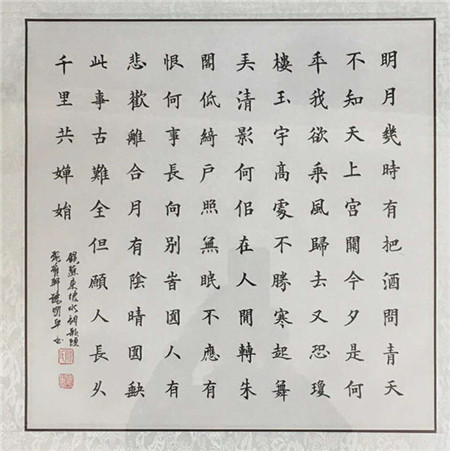 明月幾時有把酒問青天
不知天上宮闕今夕是何
年我欲乘風歸去又恐瓊
樓玉宇高處不勝寒起舞
弄清影何佀在人間轉朱
閣低綺戶照無眠不應有
恨何事長向別旹圓人有
悲歡離合月有陰晴圓缺
此事古難全但願人長久
千里共嬋娟
錄蘇東坡水調歌頭